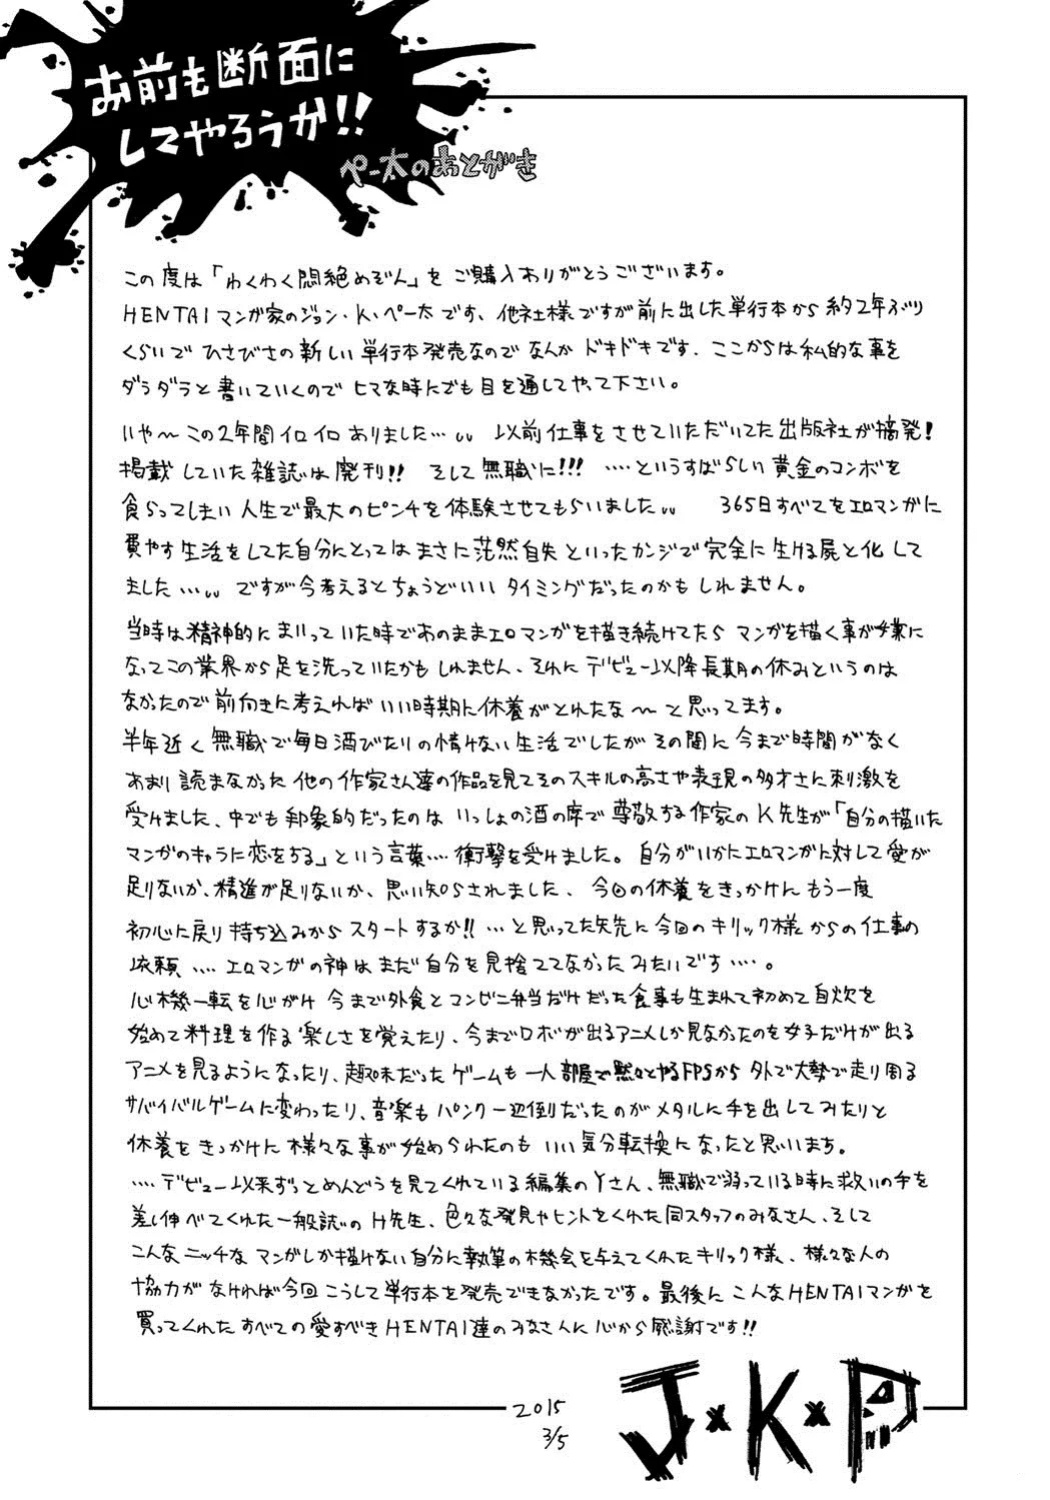 お前も断面に
してやろうか!!
ペー太のあとがき
この度は「わくわく悶絶めぞん」をご購入ありがとうございます。
HENTAIマンガ家のジョン・K・ペー太です、他社様ですが前に出した単行本から約2年ぶり
くらいでひさびさの新しい単行本発売なのでなんかドキドキです、ここからは私的な事を
ダラダラと書いていくのでヒマな時にでも目を通してやって下さい。
いや〜この2年間イロイロありました… 以前仕事をさせていただいてた出版社が摘発!
掲載していた雑誌は廃刊!! そして無職に!!! ‥‥というすばらしい黄金のコンボを
食らってしまい人生で最大のピンチを体験させてもらいました 365日すべてをエロマンガに
費やす生活をしてた自分にとってはまさに茫然自失といったカンジで完全に生ける屍と化して
ました… ですが今考えるとちょうどいいタイミングだったのかもしれません。
当時は精神的にまいっていた時であのままエロマンガを描き続けてたらマンガを描く事が嫌に
なってこの業界から足を洗っていたかもしれません、それにデビュー以降長期の休みというのは
なかったので前向きに考えればいい時期に休養がとれたな〜と思ってます。
半年近く無職で毎日酒びたりの情けない生活でしたがその間に今まで時間がなく
あまり読まなかった他の作家さん達の作品を見てそのスキルの高さや表現の多才さに刺激を
受けました、中でも印象的だったのはいっしょの酒の席で尊敬する作家のK先生が「自分の描いた
マンガのキャラに恋をする」という言葉‥‥衝撃を受けました。自分がいかにエロマンガに対して愛が
足りないか、精進が足りないか、思い知らされました、今回の休養をきっかけにもう一度
初心に戻り持ち込みからスタートするか!! …と思ってた矢先に今回のキリック様からの仕事の
依頼‥‥エロマンガの神はまだ自分を見捨ててなかったみたいです‥‥。
心機一転を心がけ今まで外食とコンビニ弁当だけだった食事も生まれて初めて自炊を
始めて料理を作る楽しさを覚えたり、今までロボが出るアニメしか見なかったのを女子だけが出る
アニメを見るようになったり、趣味だったゲームも一人部屋で黙々とやるFPSから外で大勢で走り周る
サバイバルゲームに変わったり、音楽もパンク一辺倒だったのがメタルに手を出してみたりと
休養をきっかけに様々な事が始められたのもいい気分転換になったと思います。
‥‥デビュー以来ずっとめんどうを見てくれている編集のYさん、無職で弱っている時に救いの手を
差し伸べてくれた一般誌のH先生、色々な発見やヒントをくれた同スタッフのみなさん、そして
こんなニッチなマンガしか描けない自分に執筆の機会を与えてくれたキリック様、様々な人の
協力がなければ今回こうして単行本を発売できなかったです。最後にこんなHENTAIマンガを
買ってくれたすべての愛すべきHENTAI達のみなさんに心から感謝です!!
2015
3/5
J×K×P